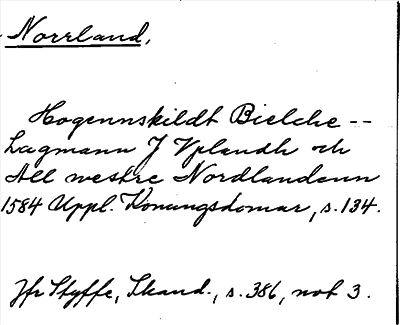 Norrland.
Hogennskildt Bielche --
Lagmann J Vplandh och
All westre Nordlandenn
1584 Uppl. Konungsdomar, s. 134.
Jfr Styffe, Skand., s. 386, not 3.